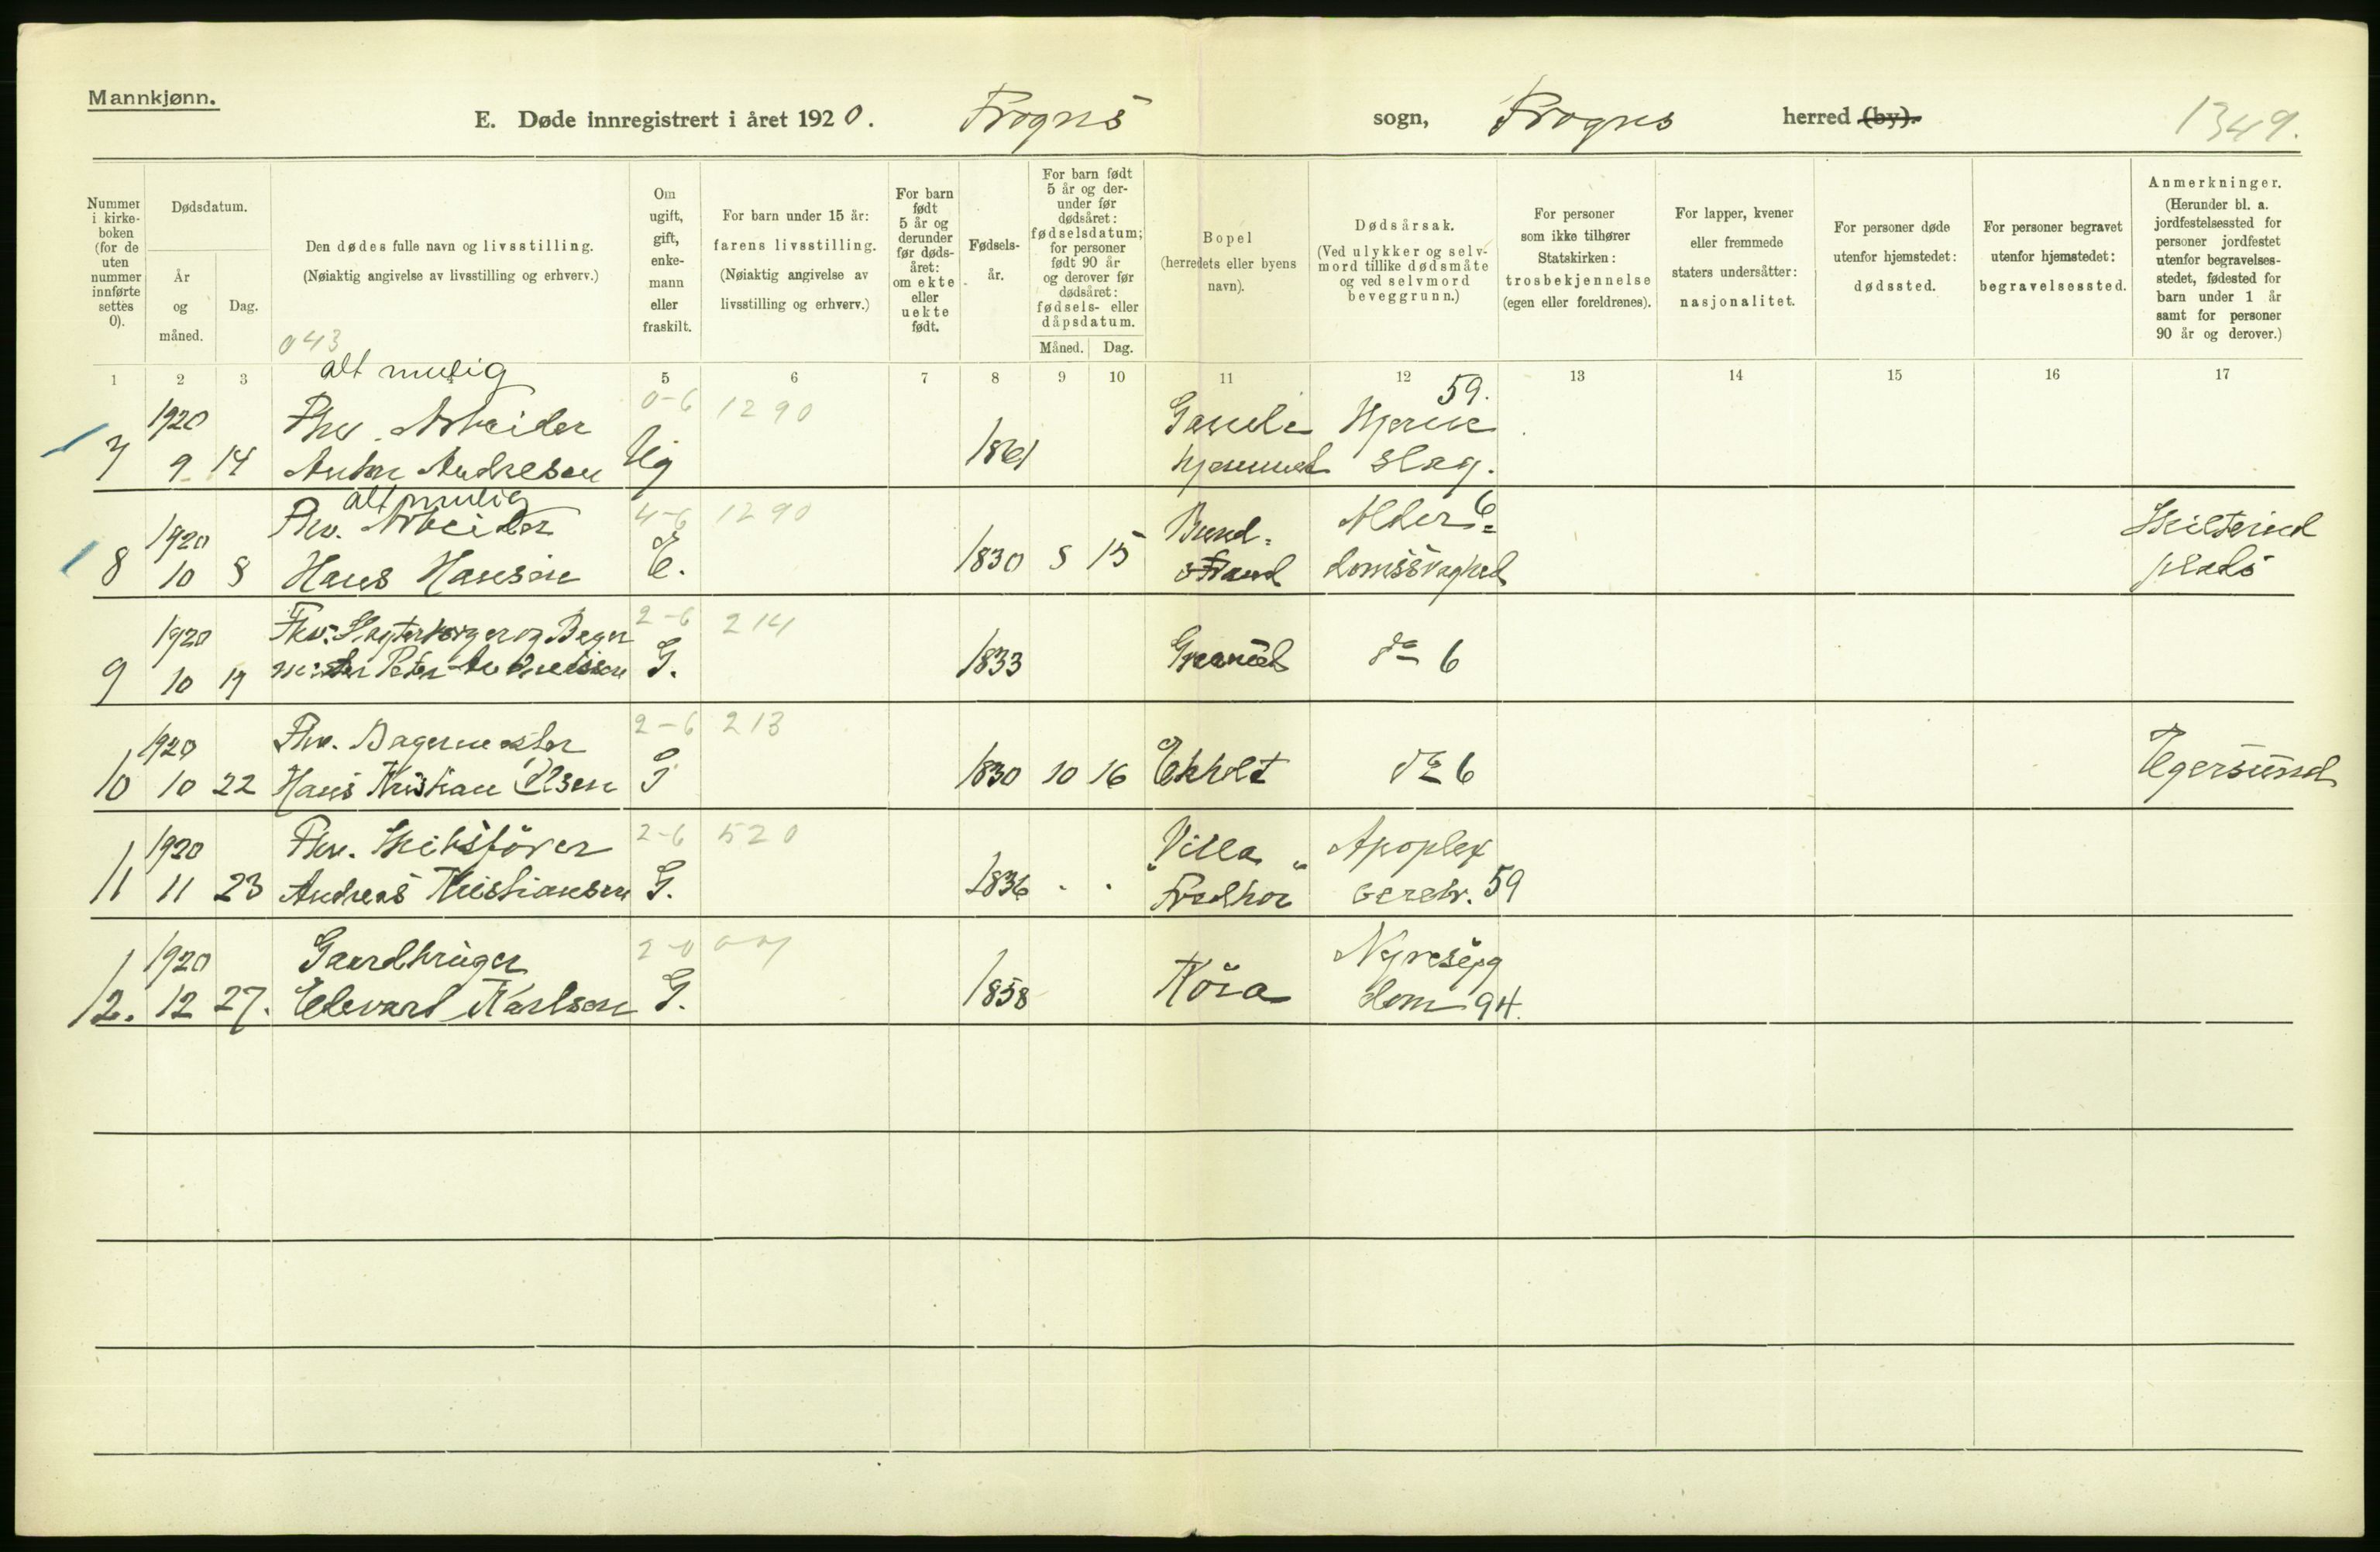 Mannkjønn.
E. Døde innregistrert i året 1920. Frogns sogn, Frogns herred (by).
1349.
Nummer i kirkeboken (for de uten nummer innførte settes 0).
Dødsdatum.
År og måned.
Dag.
Den dødes fulle navn og livsstilling.
(Nøiaktig angivelse av livsstilling og erhverv.)
Om ugift, gift, enkemann eller fraskilt.
For barn under 15 år: farens livsstilling.
(Nøiaktig angivelse av livsstilling og erhverv.)
For barn født 5 år og derunder før dødsåret: om ekte eller uekte født.
Fødselsår.
For barn født 5 år og derunder før dødsåret: fødselsdatum; for personer født 90 år og derover før dødsåret: fødsels- eller dåpsdatum.
Måned. Dag.
Bopel
(herredets eller byens navn).
Dødsårsak.
(Ved ulykker og selvmord tillike dødsmåte og ved selvmord beveggrunn.)
For personer som ikke tilhører Statskirken: trosbekjennelse (egen eller foreldrenes).
For lapper, kvener eller fremmede staters undersåtter: nasjonalitet.
For personer døde utenfor hjemstedet: dødssted.
For personer begravet utenfor hjemstedet: begravelsessted.
Anmerkninger.
(Herunder bl. a. jordfestelsessted for personer jordfestet utenfor begravelsesstedet, fødested for barn under 1 år samt for personer 90 år og derover.)
043
1 2 3 5 6 7 8 9 10 11 12 13 14 15 16 17
alt mulig
1920 Fhv. Arbeider 0-6 1290 Gamle Hjerte 59.
7 9 14 Anton Andresen Ug 1861 slag.
alt mulig
1920 Fhv. Arbeider 4-6 1290 Alder= 6
8 10 8 Hans Hansen E. 1830 5 15 strand domssvaghed plads
1920 Fhv. og Bager 2-6 214
9 10 19 mester Peter G. 1833 do 6
1920 Fhv. Bagermester 2-6 213
10 10 22 Hans Kristian Olsen G 1830 10 16 Ekholt do 6 Egersund
1920 Fhv. Skibsfører 2-6 520 "Villa" Apoplex
11 11 23 Andreas Kristiansen G. 1836 . . cerebr. 59
1920 Gaardbruger 2-0 Nyresyg
12. 12 27. Edvard Karlsen G. 1858 dom 94.